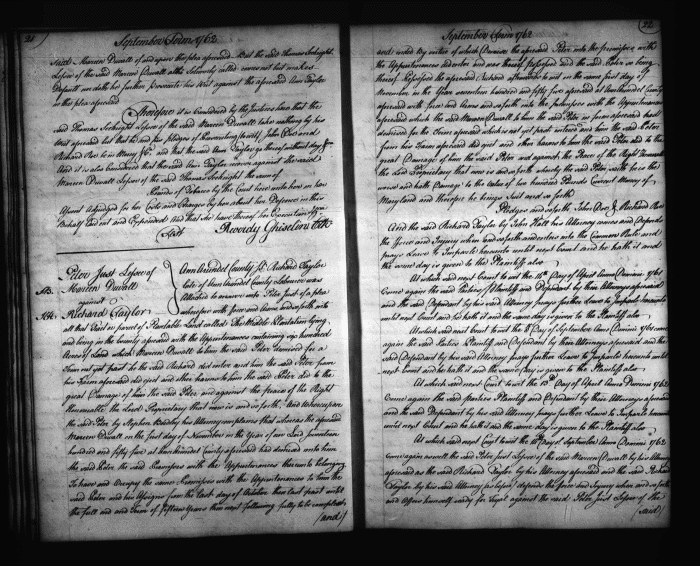 21
September Term 1762
said Mareen Duvall of and upon the plea aforesaid But the said Thomas Seekright
Lessee of the said Mareen Duvall altho Solemnly called comes not but makes
Default nor doth he further prosecute his Writ against the aforesaid Ann Taylor
in the plea aforesaid
Therefore it is Considered by the Justices here that the
said Thomas Seekright Lessee of the said Mareen Duvall take nothing by his
Writ aforesaid but that he and his pledges of prosecuting (to wit) John Doe and
Richard Roe be in Mercy &c and that the said Ann Taylor go thereof without day &c
And it is also Considered that the said Ann Taylor recover against the said
Mareen Duvall Lessor of the said Thomas Seekright the sum of
Pounds of Tobacco by the Court here unto him on her
Assent Adjudged for her Costs and Charges by her about her Defence in this
Behalf laid out and Expended and that she have thereof her Execution &c
Test Reverdy Ghiselin Clk
Peter Just Lessee of
Mareen Duvall
against
Richard Taylor
Ann Arundel County Ss Richard Taylor
late of Ann Arundel County Labourer was
Attached to answer unto Peter Just of a plea
wherefore with force and Arms and so forth into
all that Tract or parcel of Plantable Land called The Middle Plantation lying
and being in the County aforesaid with the Appurtenances containing six hundred
Acres of Land which Mareen Duvall to him the said Peter demised for a
Term not yet past he the said Richard did enter and him the said Peter from
his Farm aforesaid did eject and other harms to him the said Peter did to the
great Damage of him the said Peter and against the peace of the Right
Honourable the Lord Proprietary that now is and so forth, And Whereupon
the said Peter by Stephen Bordley his Attorney complains that whereas the aforesaid
Mareen Duvall on the first day of November in the Year of our Lord seventeen
hundred and fifty five at Ann Arundel County aforesaid had demised unto him
the said Peter the said Premises with the Appurtenances thereunto belonging
To have and Occupy the same Premisses with the Appurtenances to him the
said Peter and his Assigns from the last day of October then last past until
the full end and Term of fifteen Years then next following fully to be compleat
(and)
22
September Term 1762
and ended By virtue of which Demise the aforesaid Peter into the premisses with
the Appurtenances did enter and was thereof possessed and the said Peter so being
thereof Possessed the aforesaid Richard afterwards to wit on the same first day of
November in the Year seventeen hundred and fifty five aforesaid at Ann Arundel County
aforesaid with force and Arms and so forth into the premisses with the Appurtenances
aforesaid which the said Mareen Duvall to him the said Peter in form aforesaid had
demised for the Term aforesaid which is not yet past entered and him the said Peter
from his Farm aforesaid did eject and other harms to him the said Peter did to the
great Damage of him the said Peter and against the Peace of the Right Honourable
the Lord Proprietary that now is and so forth whereby the said Peter saith he is the
worse and hath Damage to the Value of two hundred Pounds Current Money of
Maryland and therefore he brings Suit and so forth
Pledges and so forth John Doe & Richard Roe
And the said Richard Taylor by John Hall his Attorney comes and Defends
the force and Injury when and so forth and enters into the Common Rule and
prays Leave to Imparle hereunto until next Court and he hath it and
the same day is given to the Plaintiff also
At which said next Court to wit the 15th Day of April Anno Domini 1761
Come again the said Parties Plaintiff and Defendant by their Attorneys aforesaid
and the said Defendant by his said Attorney prays further Leave to Imparle hereunto
until next Court and he hath it and the same day is given to the Plaintiff also
At which said next Court to wit the 8th Day of September Anno Domini 1761 come
again the said Parties Plaintiff and Defendant by their Attorneys aforesaid and the
said Defendant by his said Attorney prays further Leave to Imparle hereunto until
next Court and he hath it and the same Day is given to the Plaintiff also
At which said next Court to wit the 13th Day of April Anno Domini 1762
Come again the said parties Plaintiff and Defendant by their Attorneys aforesaid
and the said Defendant by his said Attorney prays further Leave to Imparle hereunto
until next Court and he hath it and the same day is given to the Plaintiff also
At which said next Court to wit the day of September Anno Domini 1762
Come again as well the said Peter Just Lessee of the said Mareen Duvall by his Attorney
aforesaid as the said Richard Taylor by his Attorney aforesaid and the said Richard
Taylor by his said Attorney (as before) defends the force and Injury when and so forth
and Offers himself ready for Tryal against the said Peter Just Lessee of the
(said)